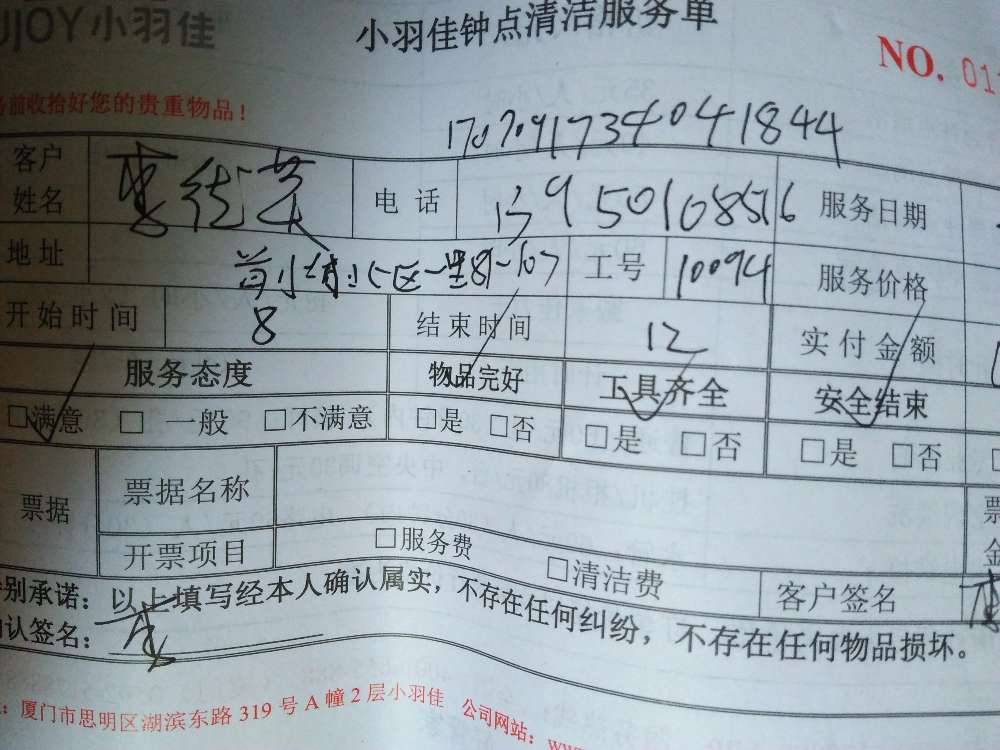 UJOY小羽佳 小羽佳钟点清洁服务单
NO. 01
前收拾好您的贵重物品！
1707091734041844
客户姓名 电话 13950108516 服务日期
地址 工号 10094 服务价格
开始时间 8 结束时间 12 实付金额
服务态度 物品完好 工具齐全 安全结束
□满意 □一般 □不满意 □是 □否 □是 □否 □是 □否
票据 票据名称
开票项目 □服务费 □清洁费 客户签名
别承诺：以上填写经本人确认属实，不存在任何纠纷，不存在任何物品损坏。
认签名：
：厦门市思明区湖滨东路319号A幢2层小羽佳 公司网站：www